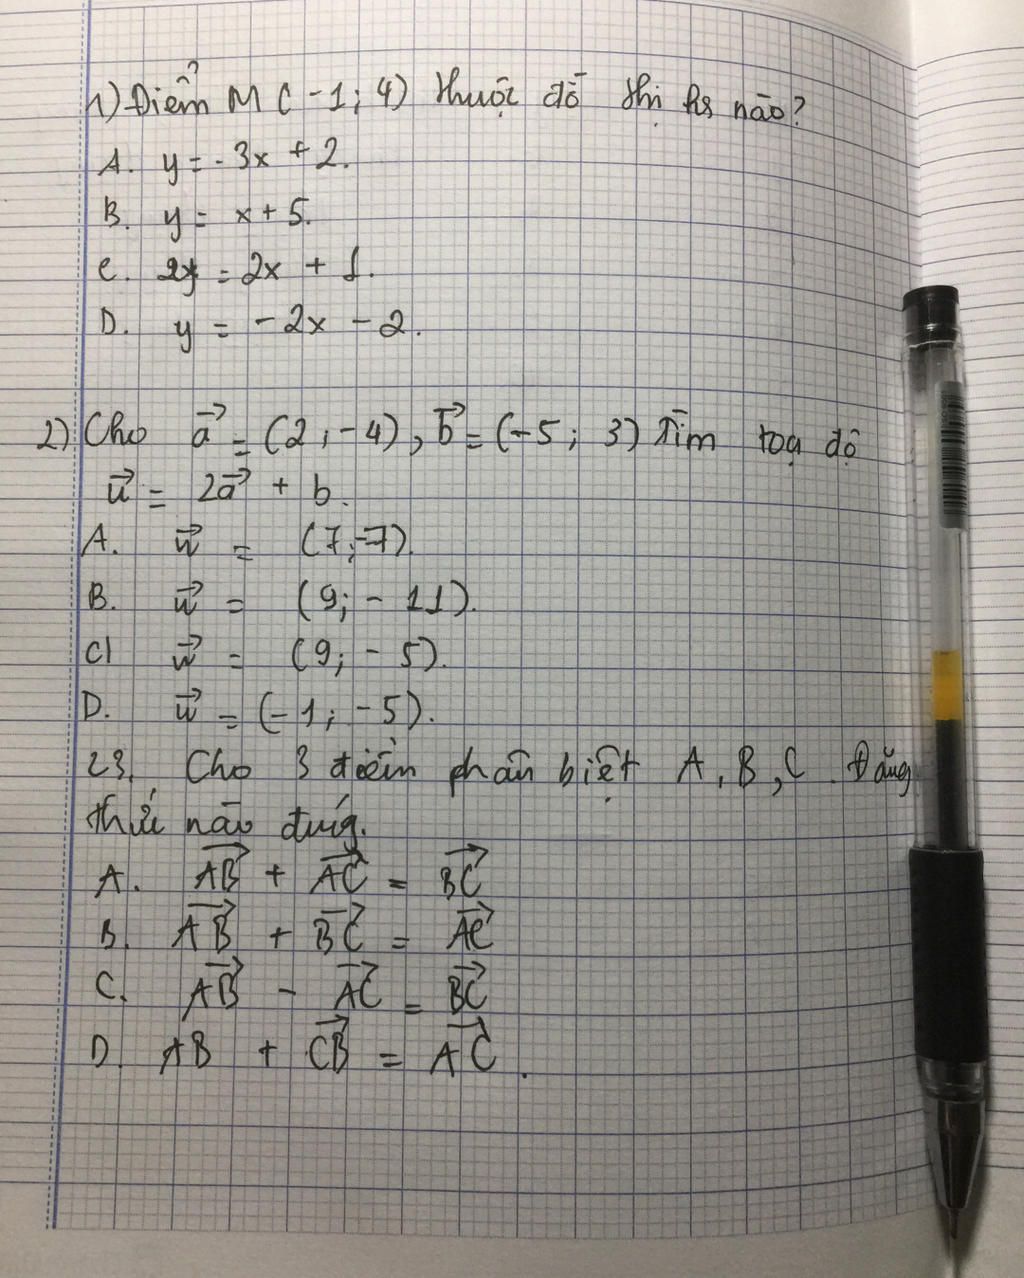 1) Điểm M (-1; 4) thuộc đồ thị hs nào?
A. y = -3x + 2.
B. y = x + 5.
C. y = 2x + 1.
D. y = -2x - 2.
2) Cho a⃗ = (2; -4), b⃗ = (-5; 3) Tìm toạ độ
u⃗ = 2a⃗ + b.
A. u⃗ = (7; -7).
B. u⃗ = (9; - 11).
C u⃗ = (9; - 5).
D. u⃗ = (-1; -5).
23. Cho 3 điểm phân biệt A, B, C. Đẳng
thức nào đúng.
A. AB⃗ + AC⃗ = BC⃗
B. AB⃗ + BC⃗ = AC⃗
C. AB⃗ - AC⃗ = BC⃗
D. AB + CB⃗ = AC⃗.